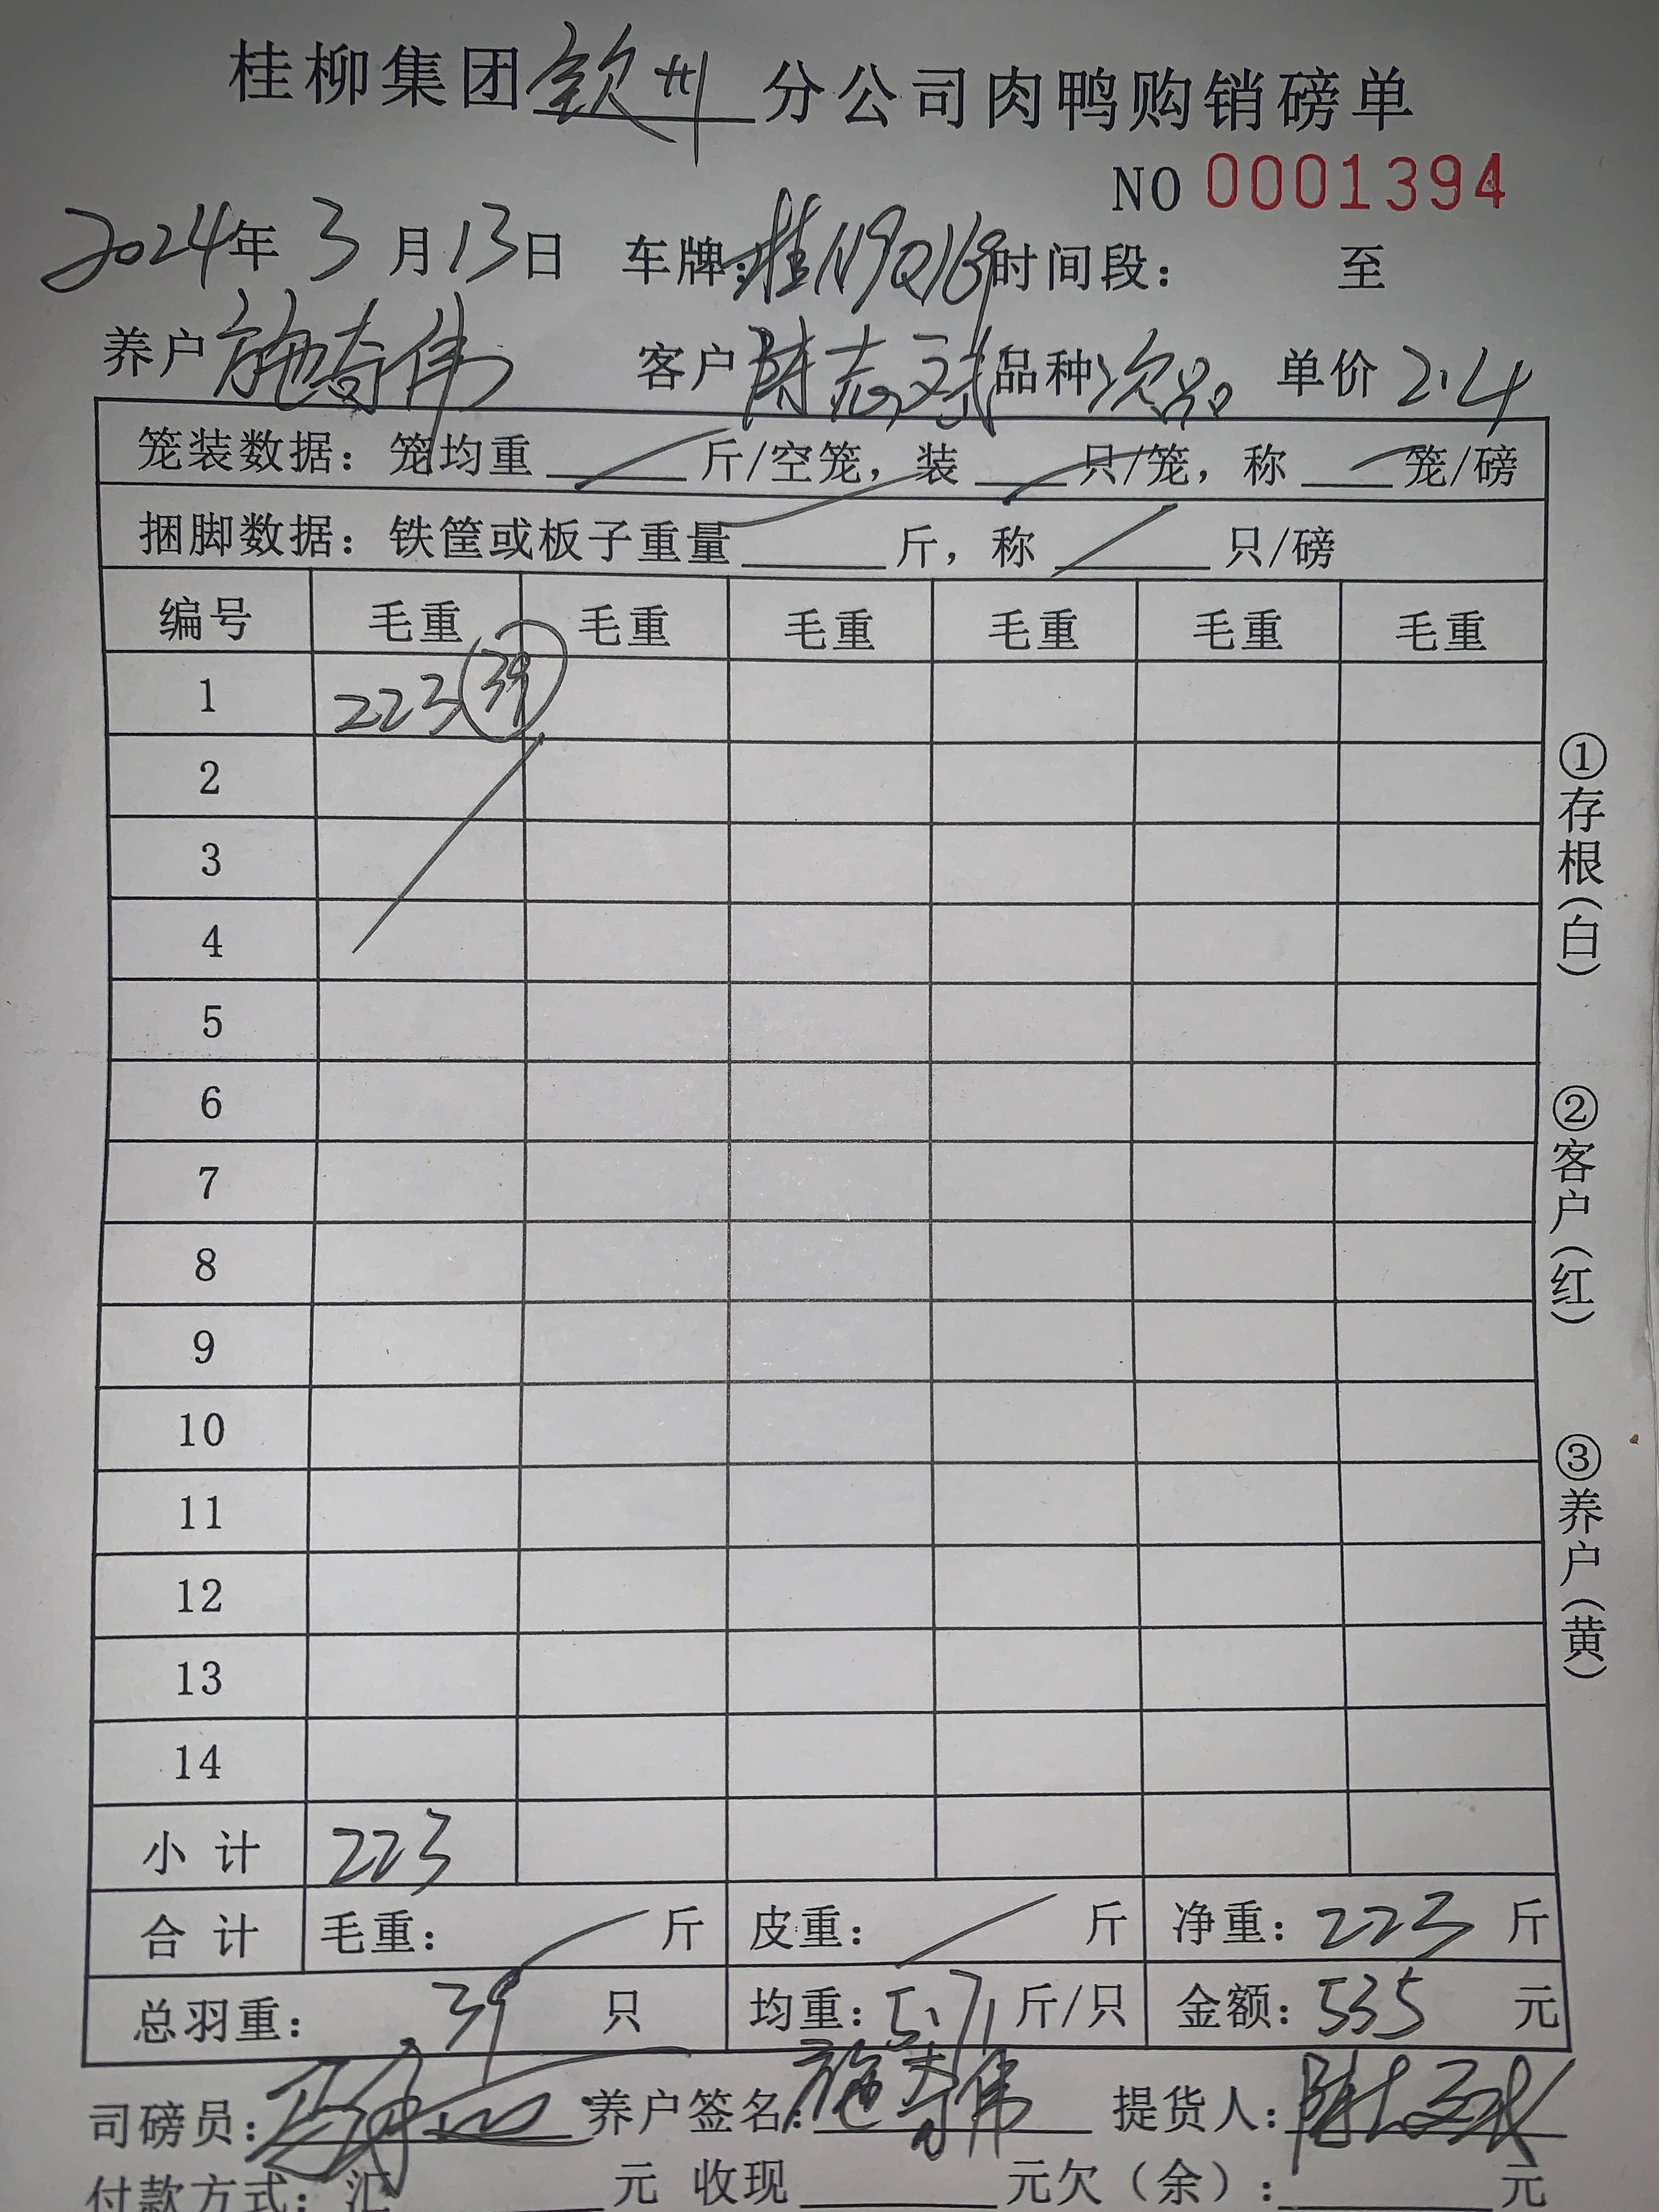 桂柳集团钦州分公司肉鸭购销磅单
NO 0001394
2024年3月13日 车牌:桂N9Q163时间段: 至
养户施奇伟 客户陈志斌品种次品 单价2.4
笼装数据:笼均重____斤/空笼,装____只/笼,称____笼/磅
捆脚数据:铁筐或板子重量____斤,称____只/磅
编号 毛重 毛重 毛重 毛重 毛重 毛重
1 223 39
2
3
4
5
6
7
8
9
10
11
12
13
14
小计 223
合计 毛重: 斤 皮重: 斤 净重:223斤
总羽重:39只 均重:5.71斤/只 金额:535元
司磅员: 养户签名:施奇伟 提货人:
付款方式:汇____元 收现____元欠(余):____元
①存根(白)
②客户(红)
③养户(黄)